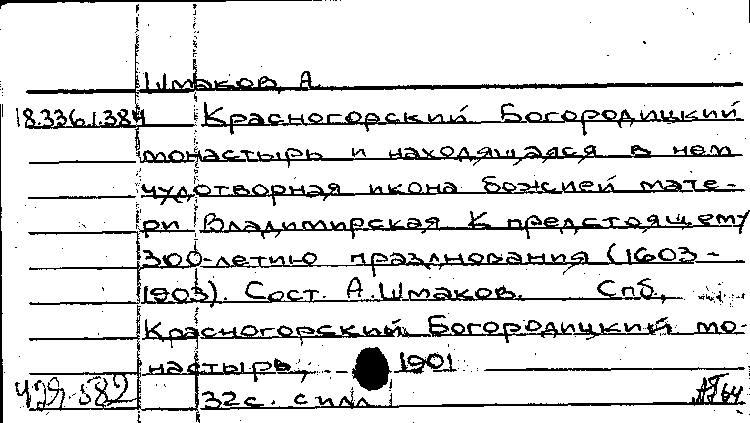 Шмаков, А.
18.336.1.384 Красногорский Богородицкий
монастырь и находящаяся в нем
чудотворная икона божией мате-
ри Владимирская К предстоящему
300-летию празднования (1603-
1903). Сост. А.Шмаков. Спб,
Красногорский Богородицкий мо-
настырь, 1901
32с. с илл